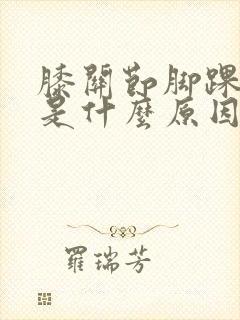 膝關節腳踝
是什麼原因
羅瑞芳